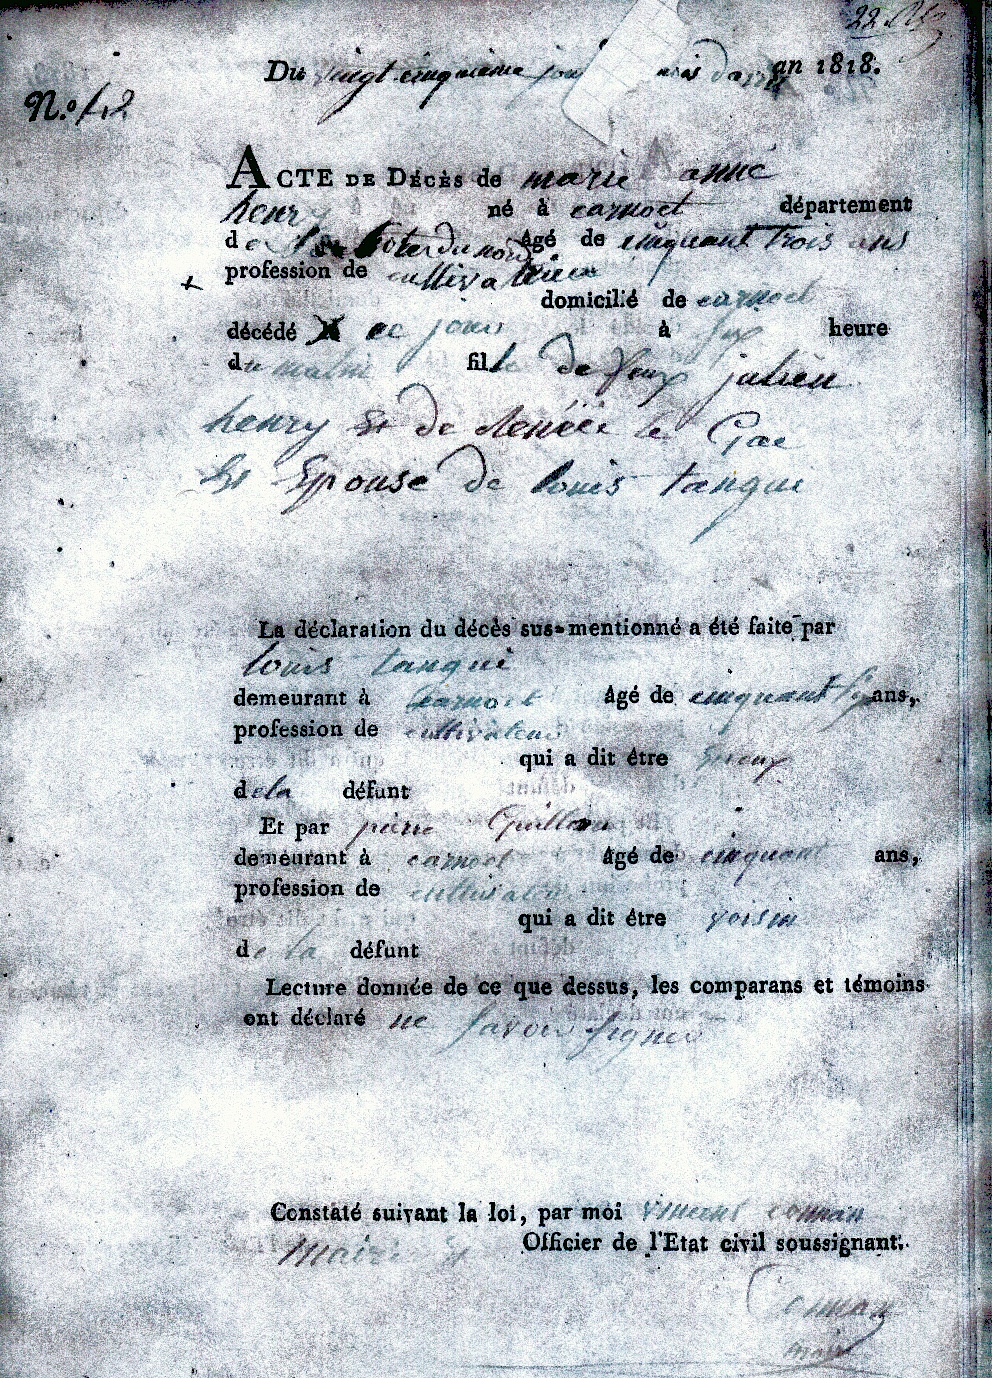 Du vingt cinquieme jour mois d'avril an 1818.
N.º 42
ACTE DE DÉCÈS de marie anne
henry né à carnoet département
des Cotes du nord âgé de cinquant trois ans
profession de cultivatrice
domicilié de carnoet
décédé ce jour à six heure
du matin fille de feux julien
henry Et de Renéée le Gac
Et Epouse de louis tangui
La déclaration du décès sus-mentionné a été faite par
louis tangui
demeurant à Carnoet âgé de cinquant six ans,
profession de cultivateur
qui a dit être Epoux
dela défunt
Et par pierre Guillou
demeurant à carnoet âgé de cinquant ans,
profession de cultivateur
qui a dit être voisin
de la défunt
Lecture donnée de ce que dessus, les comparans et témoins
ont déclaré ne savoir signer
Constaté suivant la loi, par moi vincent connan
Maire Et Officier de l'Etat civil soussignant.
Connan
maire